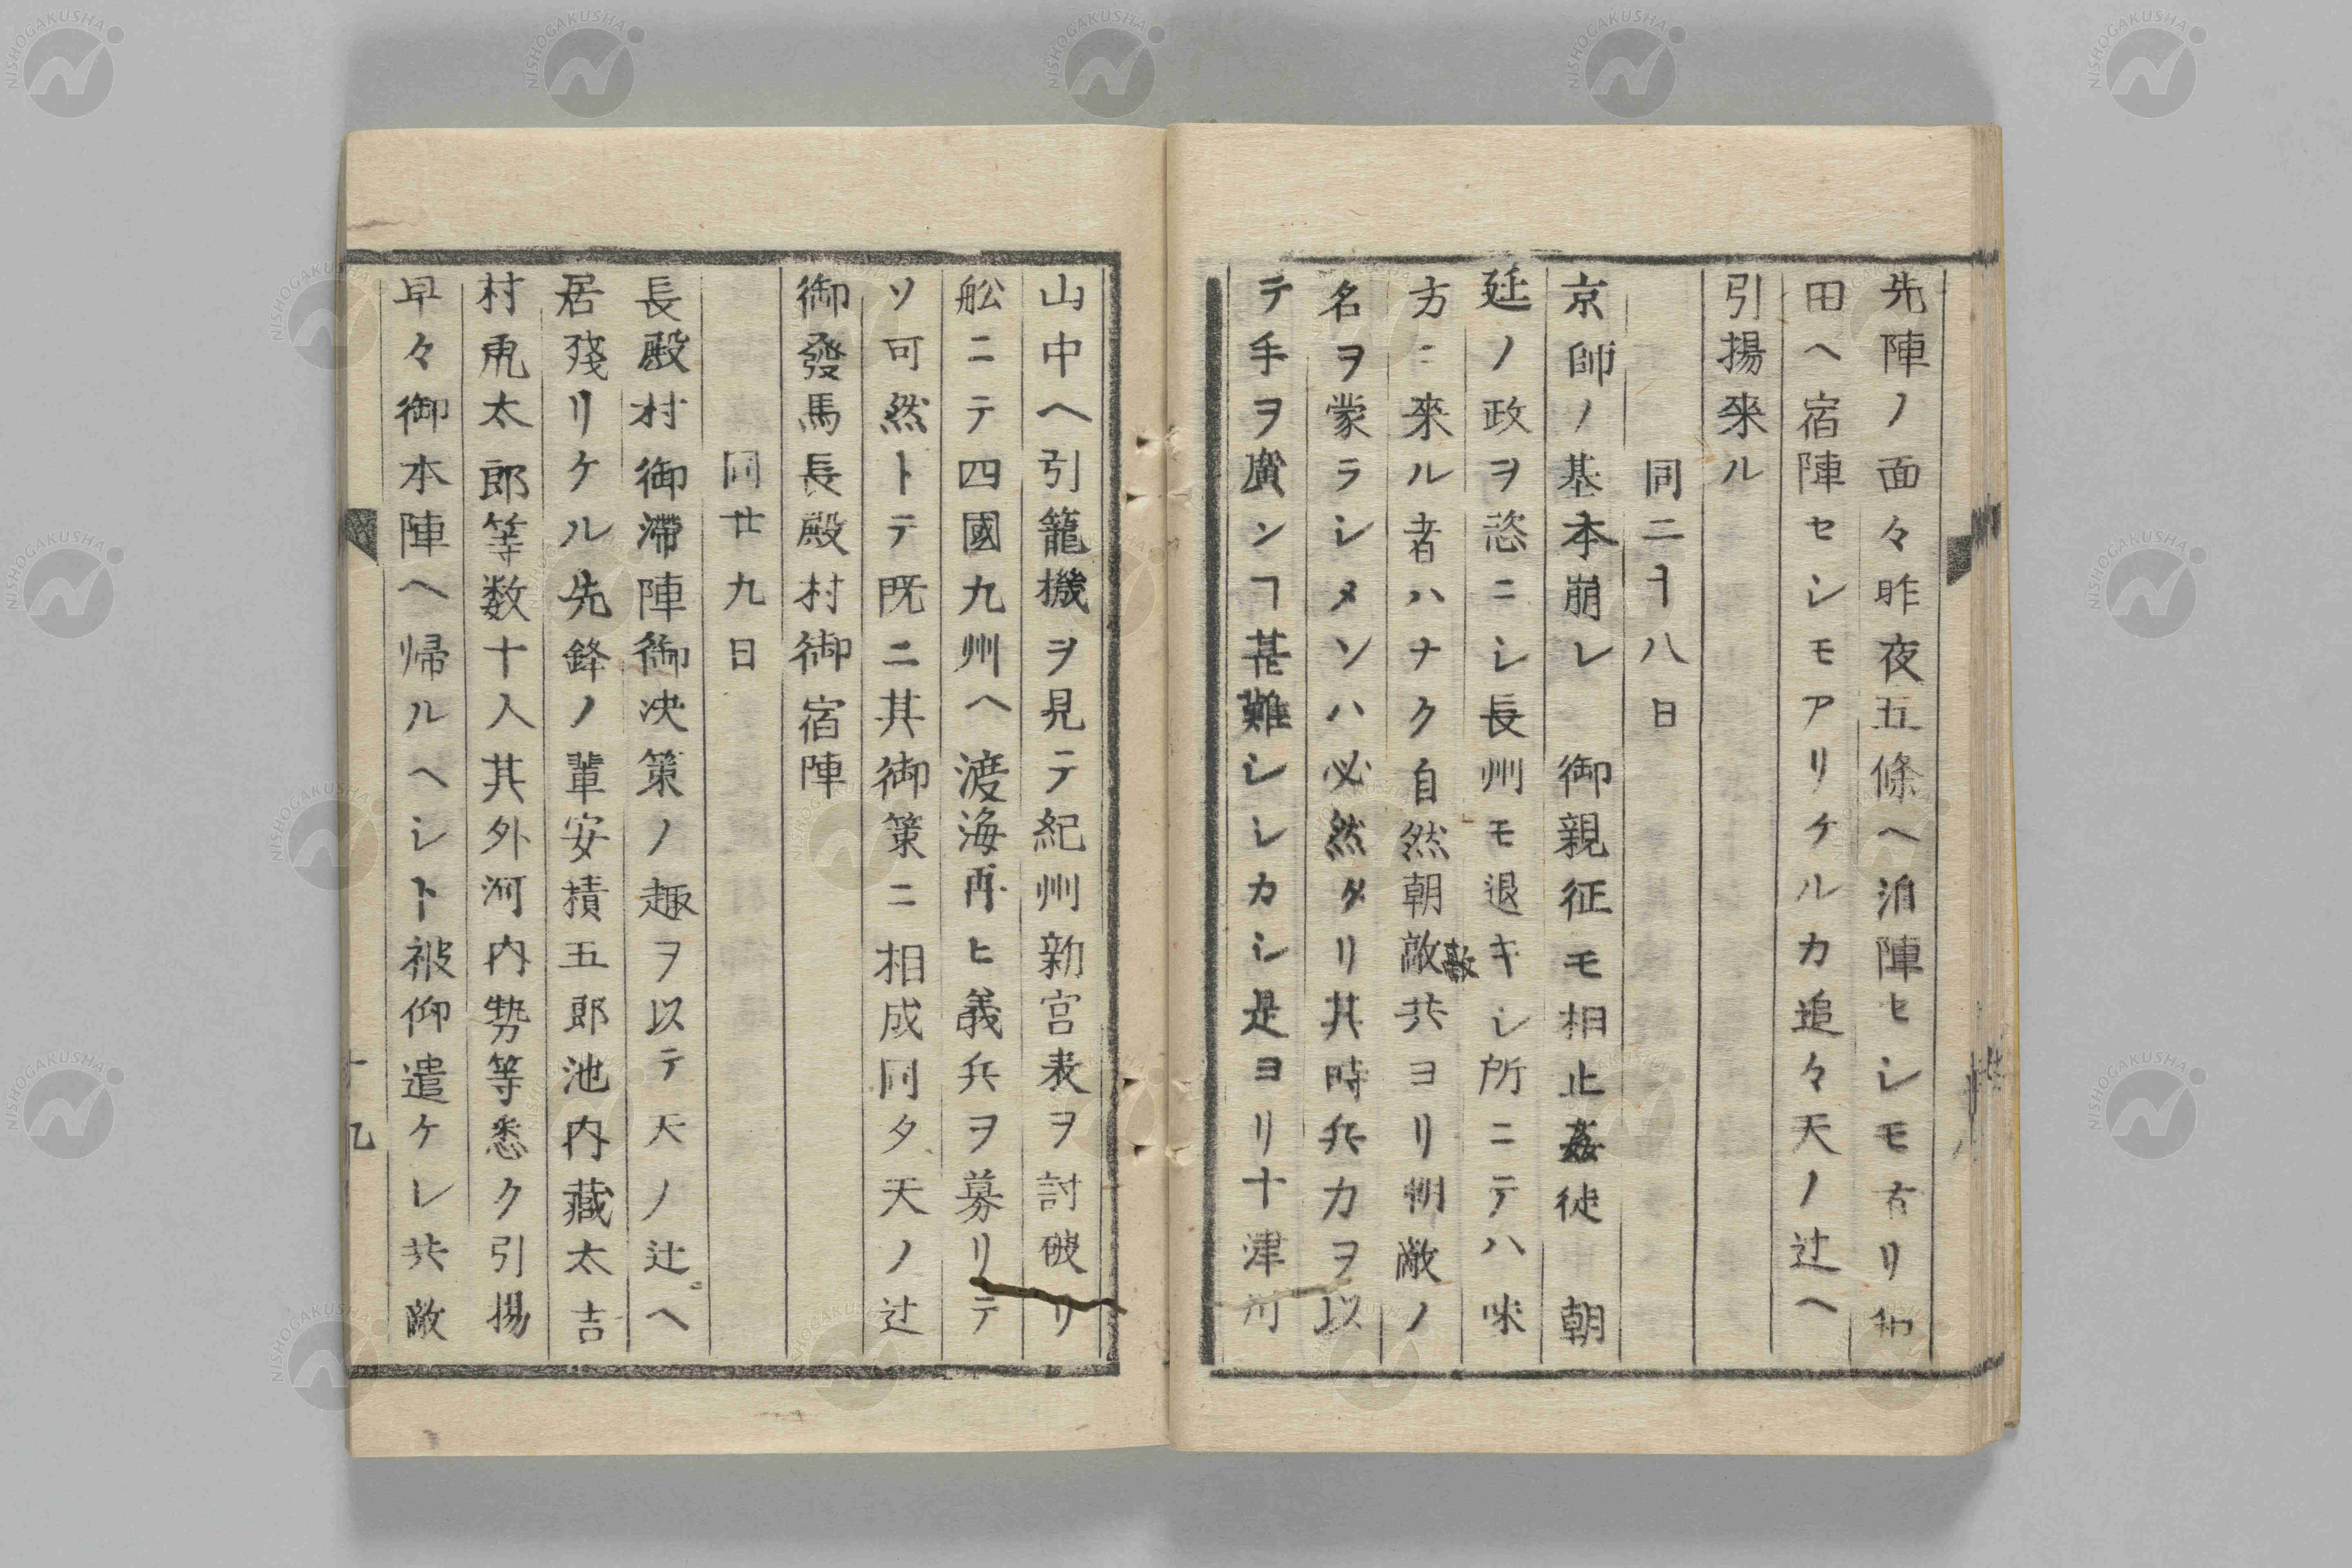 先陣ノ面々昨夜五條ヘ泊陣ヒシモ有リ和
田ヘ宿陣セシモアリケルカ追々天ノ辻ヘ
引揚來ル
同二十八日
京師ノ基本崩レ 御親征モ相止姦徒 朝
廷ノ政ヲ恣ニシ長州モ退キシ所ニテハ味
方ニ來ル者ハナク自然朝敵共ヨリ朝敵ノ
敵
名ヲ蒙ラシメソハ必然タリ其時兵力ヲ以
テ手ヲ廣ンヿ甚難シレカシ是ヨリ十津河
山中ヘ引籠機ヲ見テ紀州新宮表ヲ討破リ
舩ニテ四國九州ヘ渡海再ヒ義兵ヲ募リテ
ソ可然トテ既ニ其御策ニ相成同夕天ノ辻
御發馬長殿村御宿陣
同廿九日
長殿村御滞陣御决策ノ趣ヲ以テ天ノ辻ヘ
居殘リケル先鋒ノ輩安積五郎池内藏太吉
村乕太郎等数十人其外河内勢等悉ク引揚
早々御本陣ヘ帰ルヘシト被仰遣ケレ共敵
十九
NISHOGAKUSHA